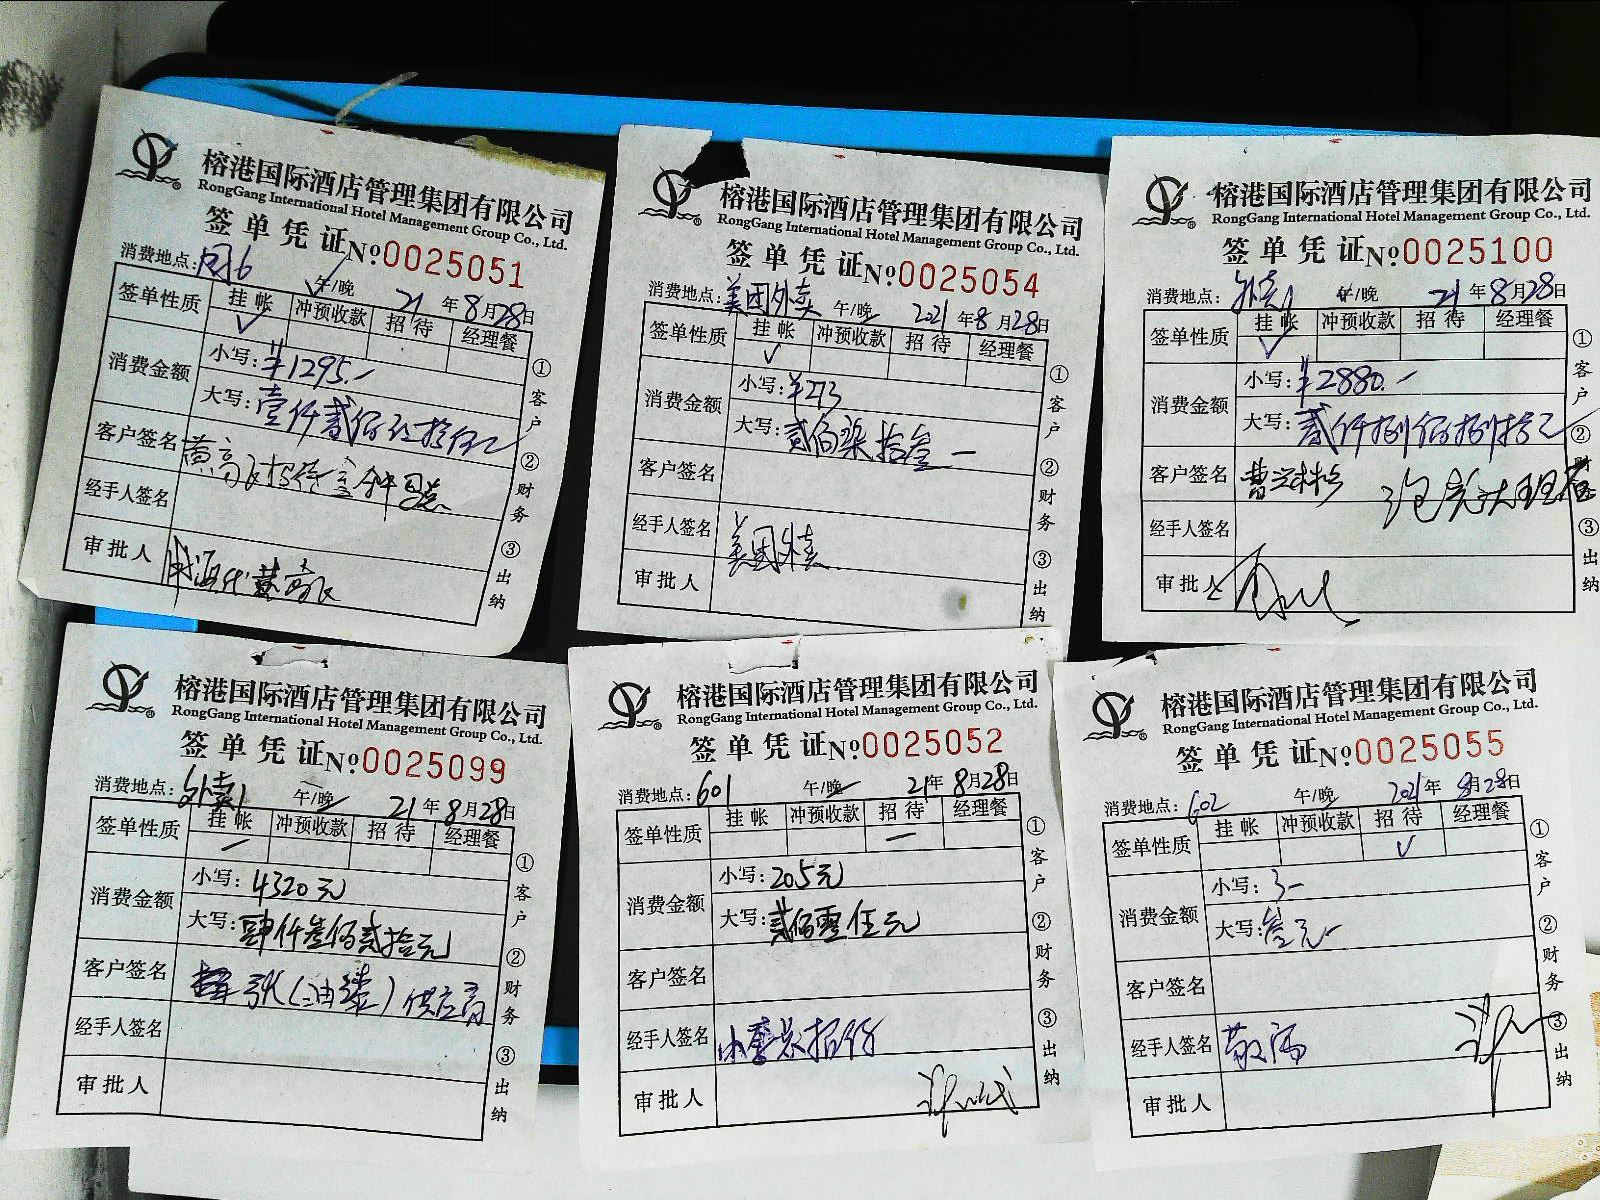 榕港国际酒店管理集团有限公司
RongGang International Hotel Management Group Co., Ltd.
签单凭证 №0025051
消费地点: 午/晚 21年8月28日
签单性质 挂帐 冲预收款 招待 经理餐
消费金额 小写:¥1295.-
大写:壹仟贰佰玖拾伍元
客户签名
经手人签名
审批人
①客户 ②财务 ③出纳
榕港国际酒店管理集团有限公司
RongGang International Hotel Management Group Co., Ltd.
签单凭证 №0025054
消费地点:美团外卖 午/晚 2021年8月28日
签单性质 挂帐 冲预收款 招待 经理餐
消费金额 小写:¥273
大写:贰佰柒拾叁
客户签名
经手人签名 美团外卖
审批人
①客户 ②财务 ③出纳
榕港国际酒店管理集团有限公司
RongGang International Hotel Management Group Co., Ltd.
签单凭证 №0025100
消费地点:外卖1 午/晚 21年8月28日
签单性质 挂帐 冲预收款 招待 经理餐
消费金额 小写:¥2880.-
大写:贰仟捌佰捌拾元
客户签名
经手人签名
审批人
①客户 ②财务 ③出纳
榕港国际酒店管理集团有限公司
RongGang International Hotel Management Group Co., Ltd.
签单凭证 №0025099
消费地点:外卖1 午/晚 21年8月28日
签单性质 挂帐 冲预收款 招待 经理餐
消费金额 小写:4320元
大写:肆仟叁佰贰拾元
客户签名 供应商
经手人签名
审批人
①客户 ②财务 ③出纳
榕港国际酒店管理集团有限公司
RongGang International Hotel Management Group Co., Ltd.
签单凭证 №0025052
消费地点:601 午/晚 21年8月28日
签单性质 挂帐 冲预收款 招待 经理餐
消费金额 小写:205元
大写:贰佰零伍元
客户签名
经手人签名
审批人
①客户 ②财务 ③出纳
榕港国际酒店管理集团有限公司
RongGang International Hotel Management Group Co., Ltd.
签单凭证 №0025055
消费地点:602 午/晚 2021年8月28日
签单性质 挂帐 冲预收款 招待 经理餐
消费金额 小写:3-
大写:叁元-
客户签名
经手人签名
审批人
①客户 ②财务 ③出纳